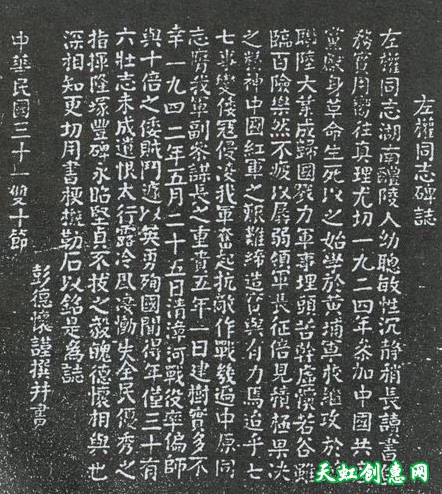 左權同志碑誌
左權同志湖南醴陵人幼聰敏性沉静稍長讀書
務實用嚮往真理尤切一九二四年参加中國共
黨獻身革命生死以之始學於黄埔軍校継攻於
聯陸大業成歸國戮力軍事埋頭苦幹虛懷若谷雖
臨百險樂然不疲以孱弱領軍長征倍見積極果決
之精神中國红軍之艱難締造實與有力焉迨乎七
七事變倭寇侵凌我軍奮起抗敵作戰幾遍中原同
志膺我軍副參謀長之重責五年一日建樹實多不
幸一九四二年五月二十五日清漳河戰役率偏師
與十倍之倭賊鬥遽以英勇殉國聞得年僅三十有
六壯志未成遺恨太行露冷風淒慟失全民優秀之
指揮隆塚豐碑永昭堅貞不拔之毅魄德懷相與也
深相知更切用書梗概勒石以銘是為誌
彭德懷謹撰并書
中華民國三十一年雙十節
天虹创意网